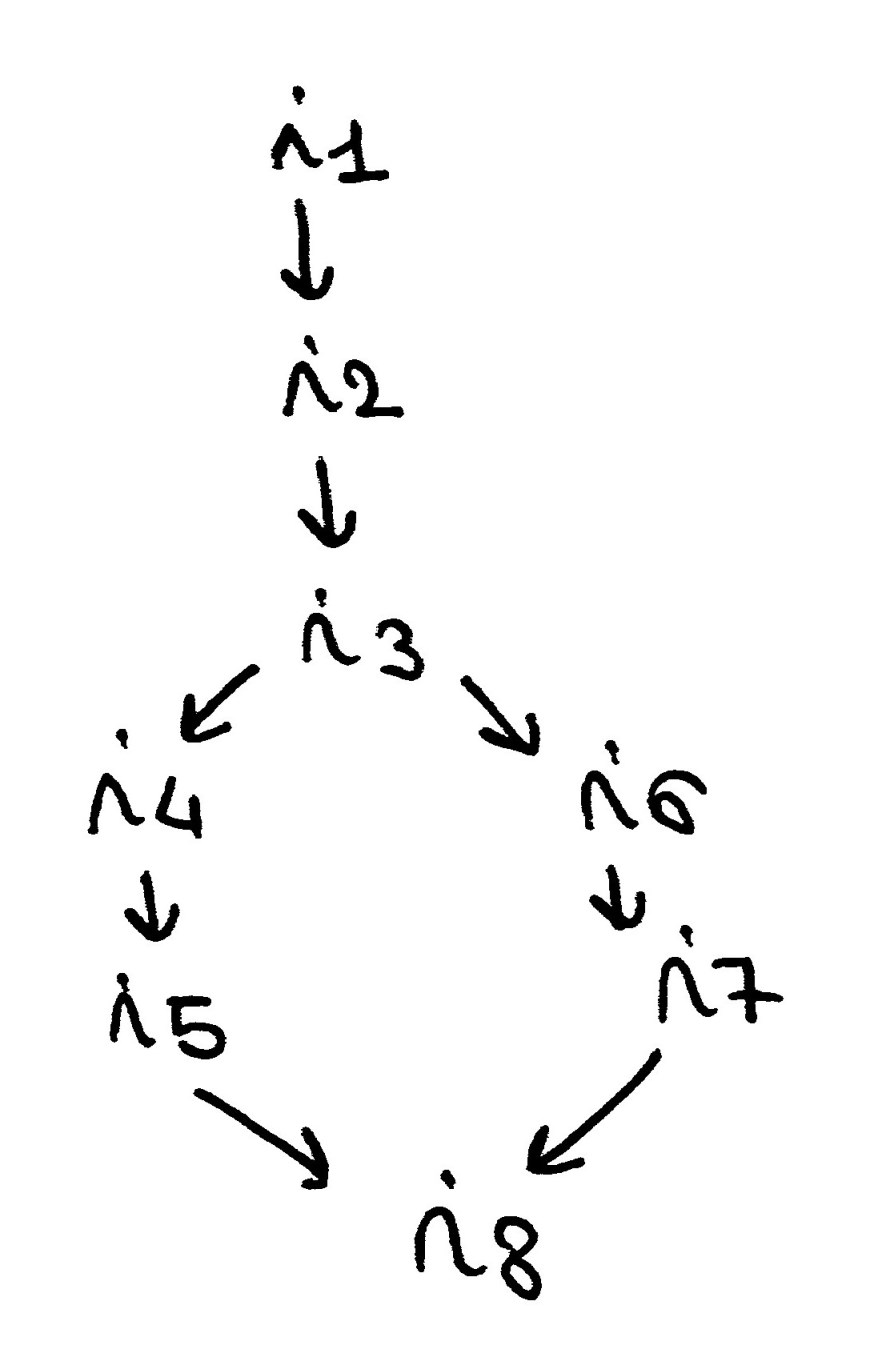 i1
i2
i3
i4 i6
i5 i7
i8